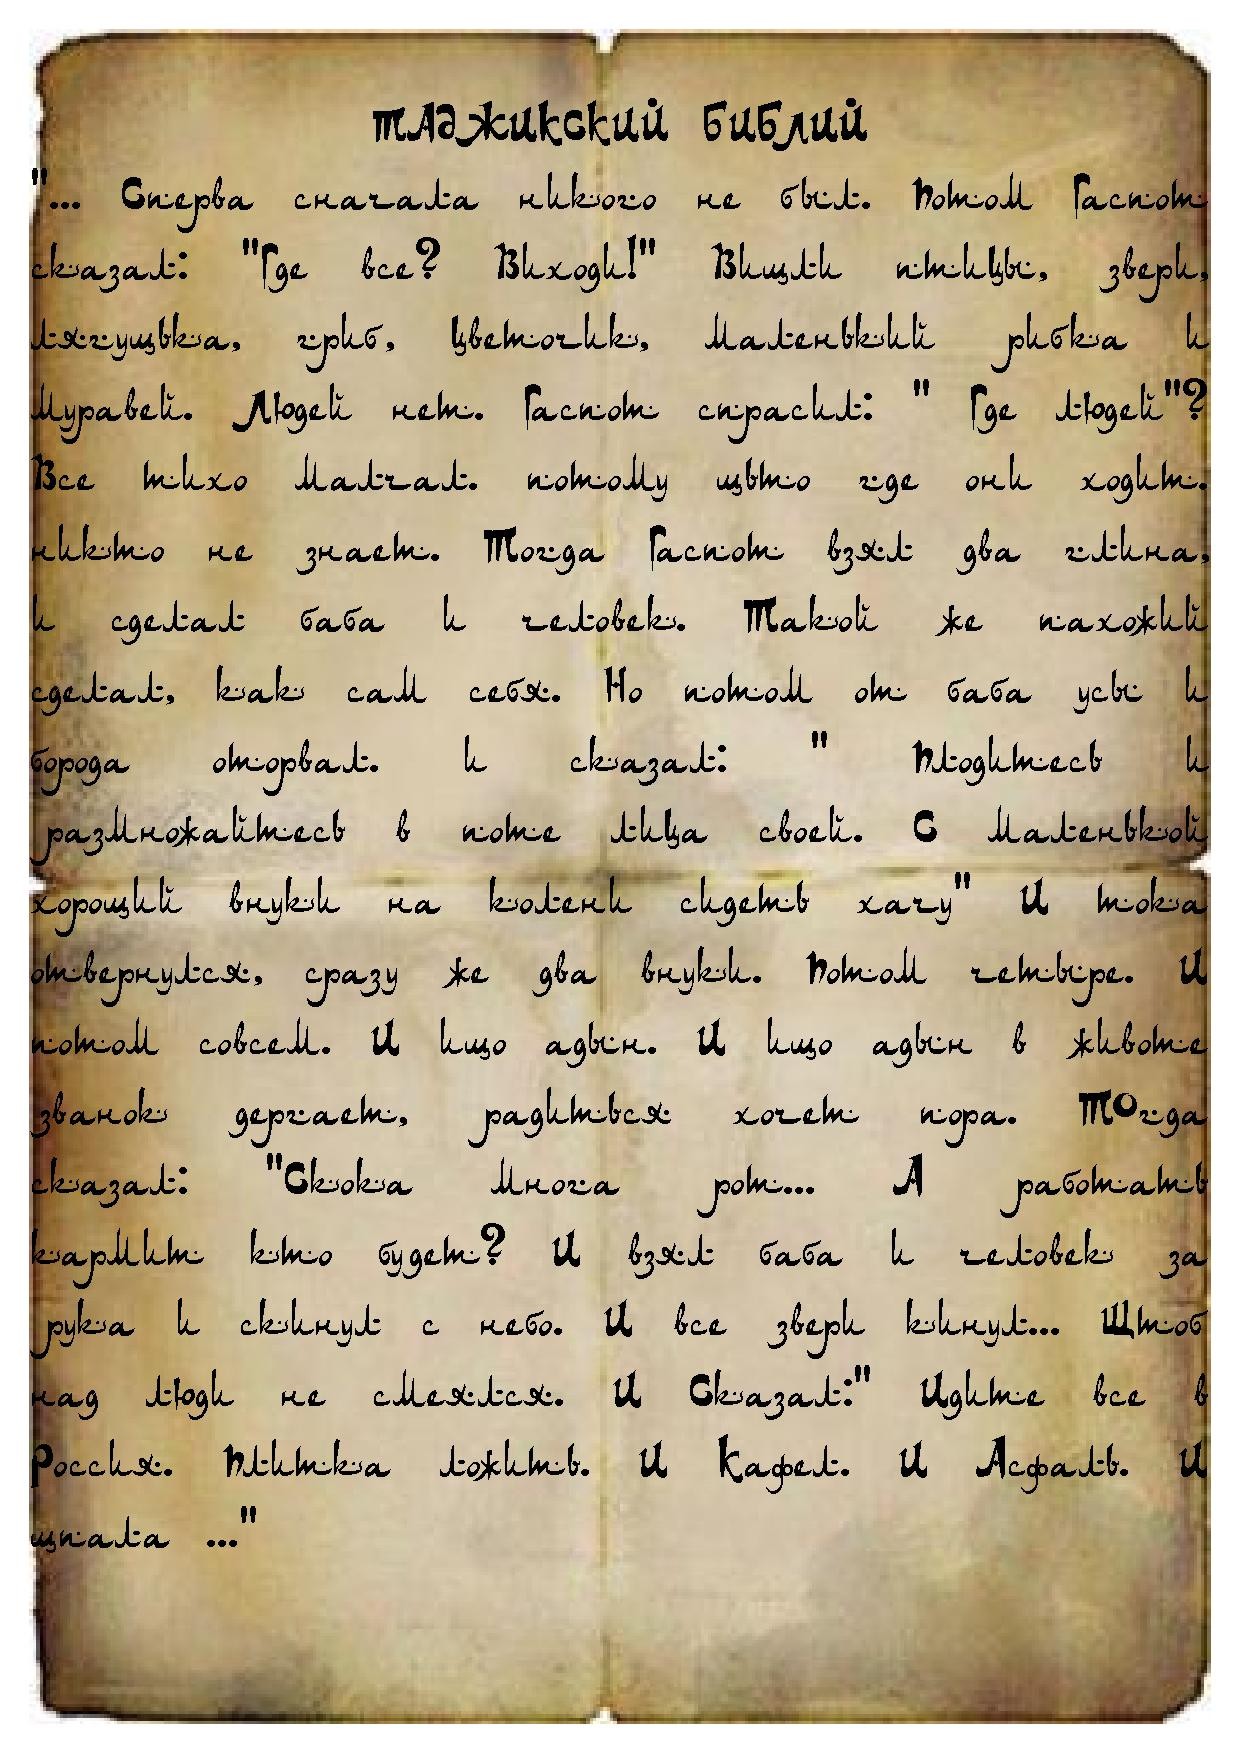 Таджикский библий
"... Сперва сначала никого не был. Потом Гаспот
сказал: "Где все? Виходи!" Вищли птицы, звери,
лягущька, гриб, цветочик, маленьккий рибка и
муравей. Людей нет. Гаспот спрасил: " Где людей"?
Все тихо малчал. потому щьто где они ходит.
никто не знает. Тогда Гаспот взял два глина,
и сделал баба и человек. Такой же пахожий
сделал, как сам себя. Но потом от баба усы и
борода оторвал. и сказал: " Плодитесь и
размножайтесь в поте лица своей. С маленькой
хорощий внуки на колени сидеть хачу" И тока
отвернулся, сразу же два внуки. Потом четыре. И
потом совсем. И ищо адын. И ищо адын в животе
званок дергает, радиться хочет пора. Тогда
сказал: "Скока многа рот... А работать
кармит кто будет? И взял баба и человек за
рука и скинул с небо. И все звери кинул... Штоб
над люди не смеялся. И Сказал:" Идите все в
Россия. Плитка ложить. И Кафел. И Асфаль. И
щпала ..."